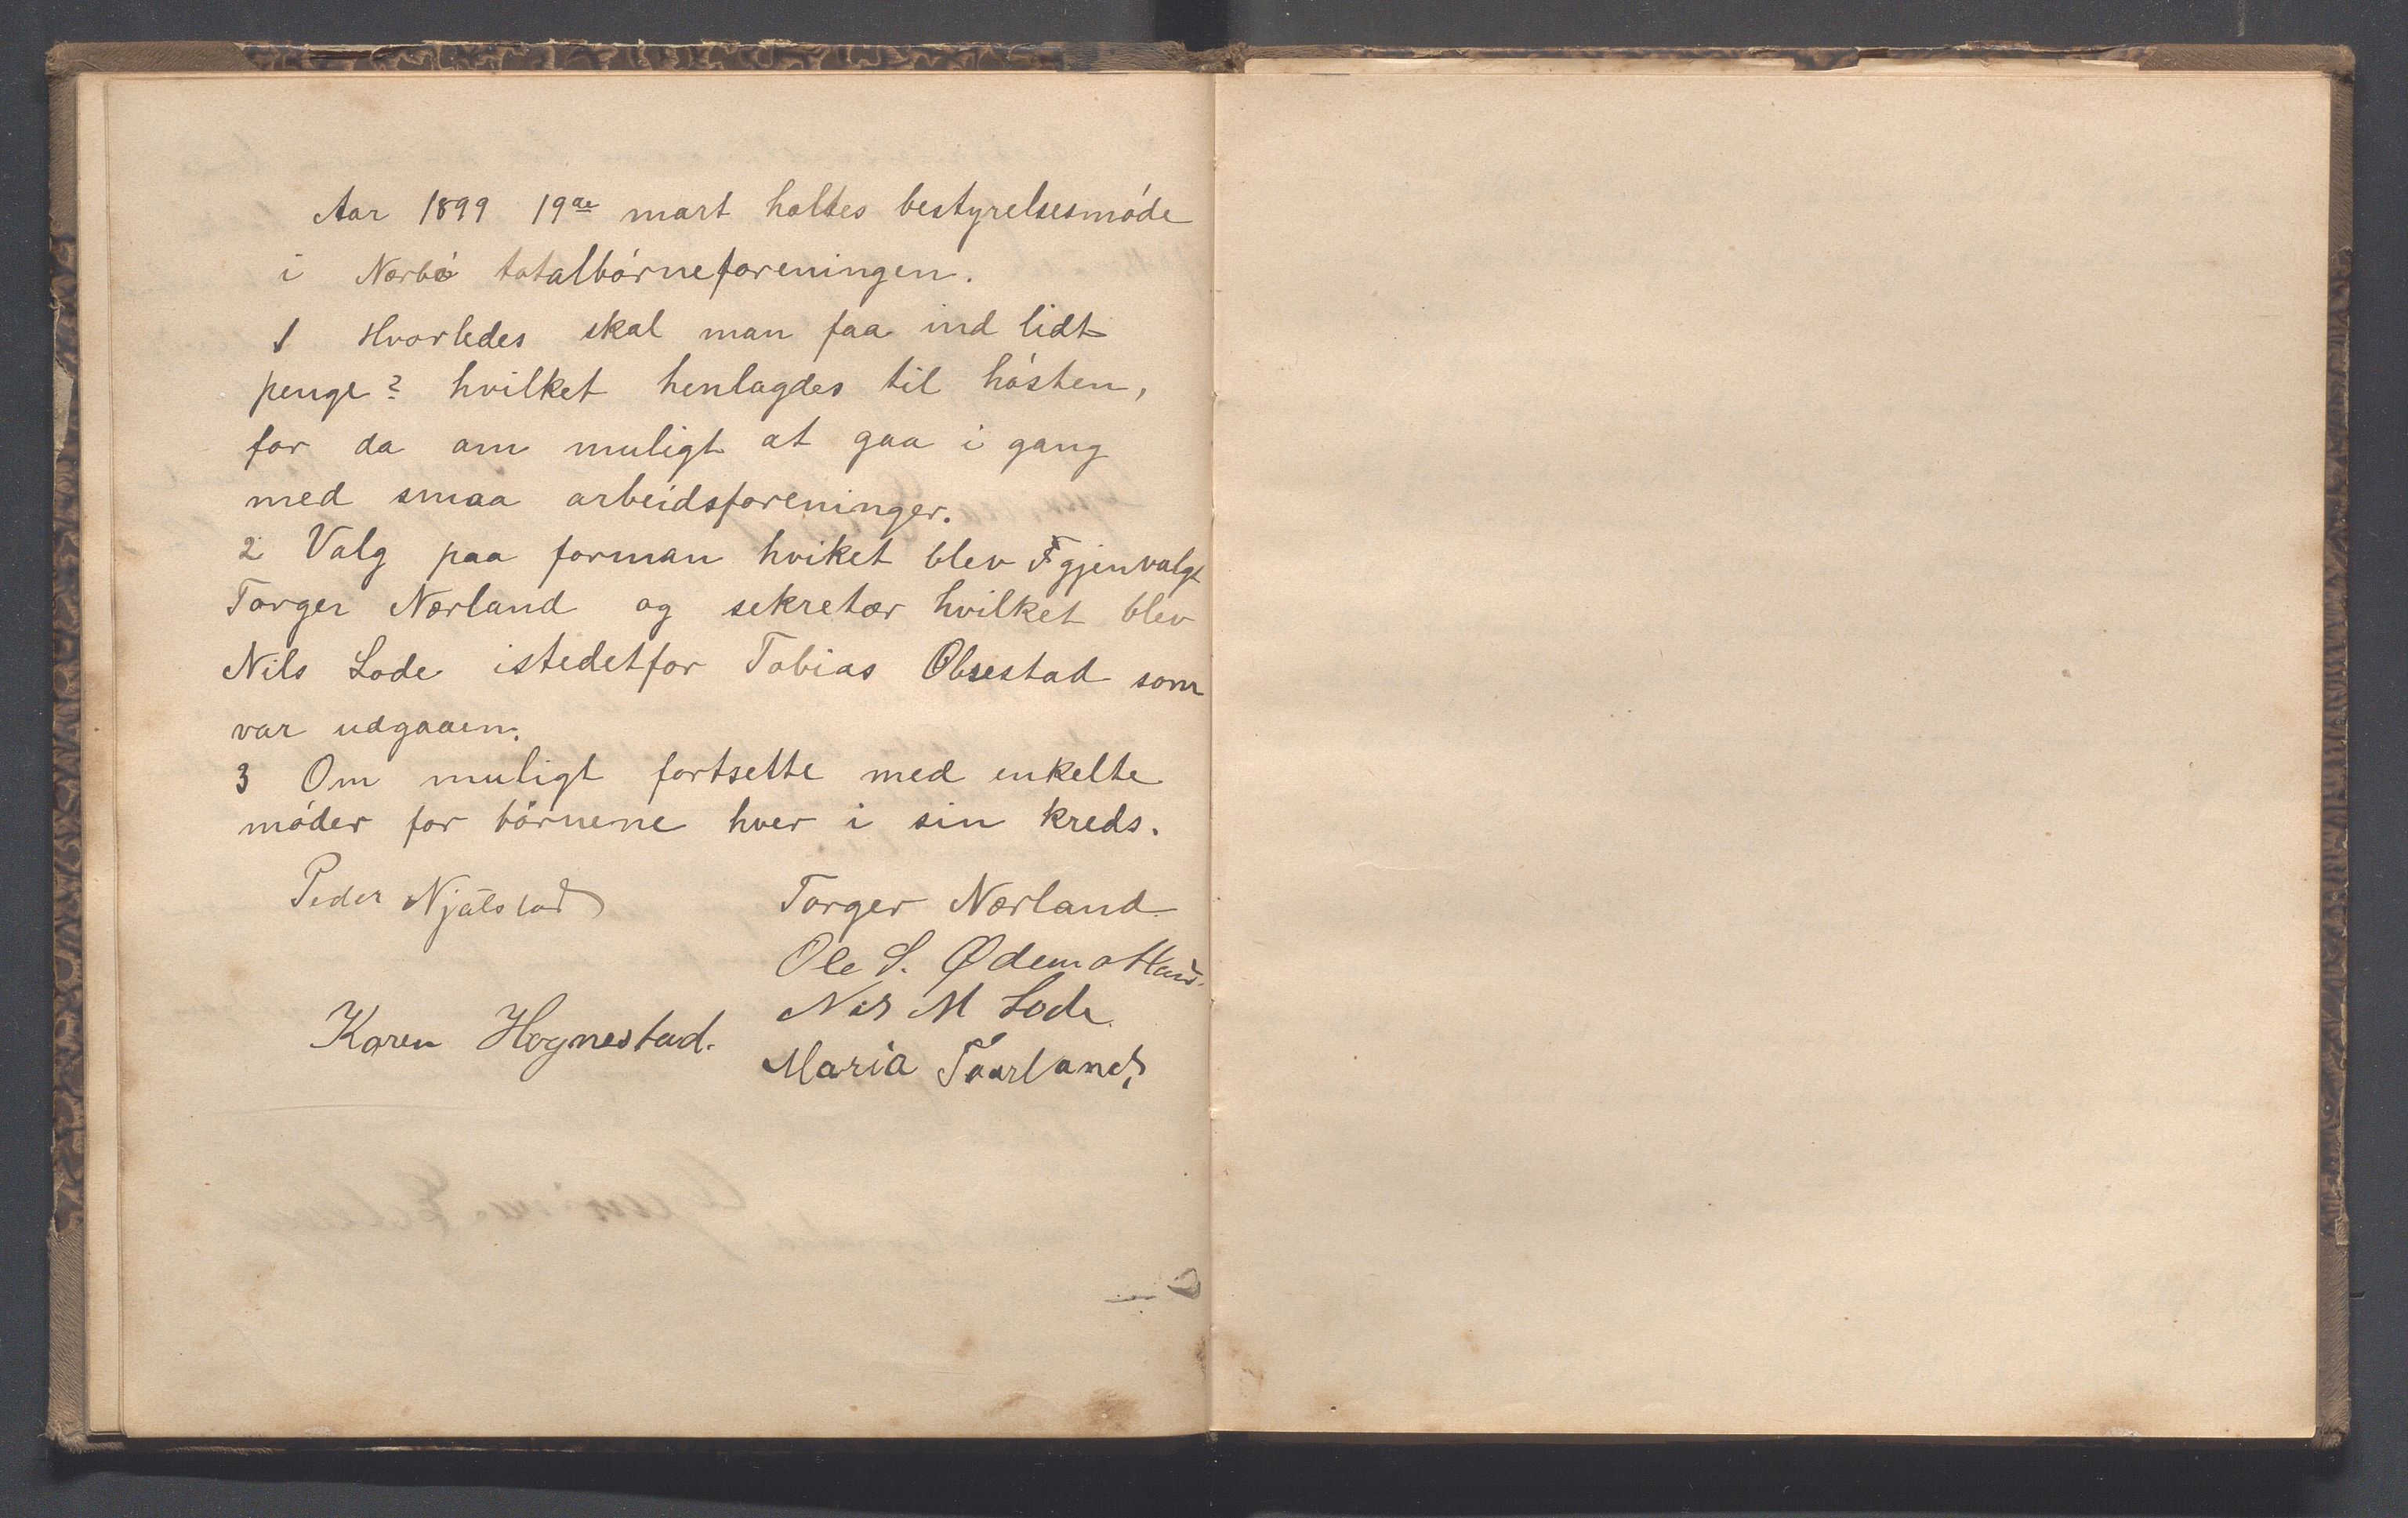 Aar 1899 19de mart holtes bestyrelsesmóde
i Nærbó totalbórneforeningen.
1 Hvorledes skal man faa ind lidt
penge? hvilket henlagdes til hósten,
for da om muligt at gaa i gang
med smaa arbeidsforeninger.
2 Valg paa forman hviket blev gjenvalgt
Torger Nærland og sekretær hvilket blev
Nils Lode istedetfor Tobias Obrestad som
var udgaaen.
3 Om muligt fortsette med enkelte
móder for bórnene hver i sin kreds.
Peder Njålstad
Torger Nærland
Ole S. Ødemotland.
Nils M Lode
Karen Hognestad.
Maria Taarland.